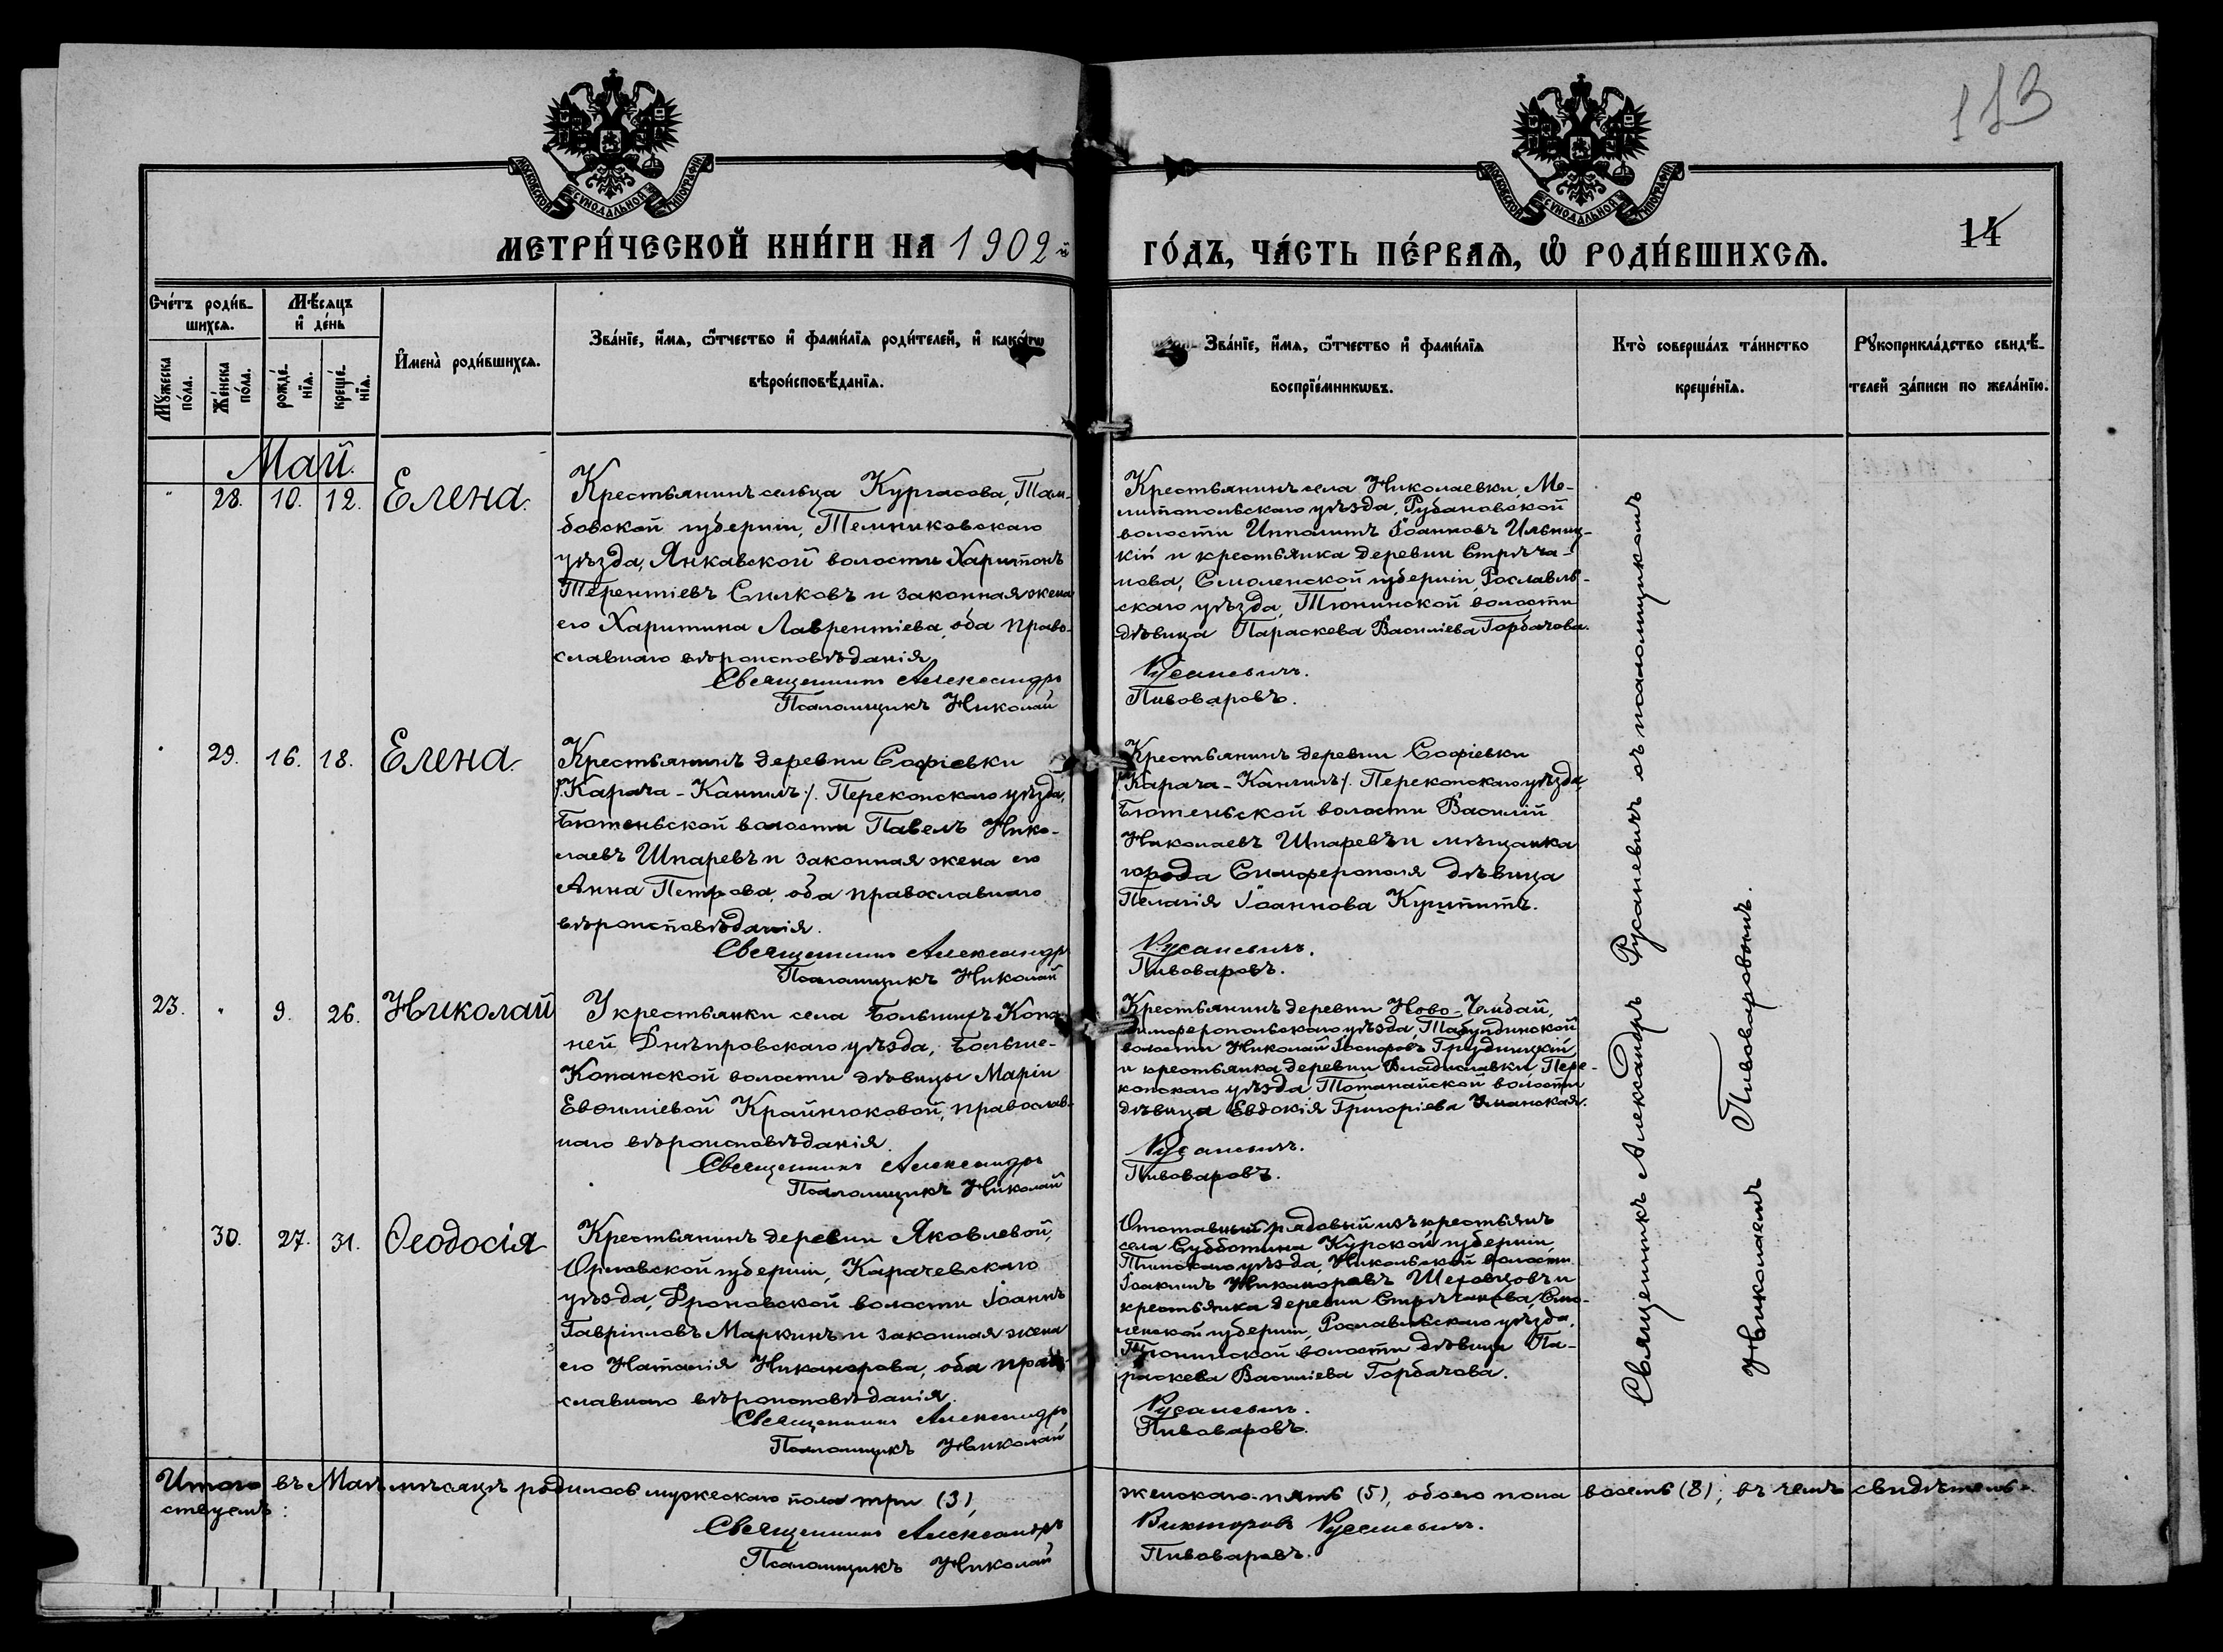 113
МОСКОВСКОЙ СѴНОДАЛЬНОЙ ТИПОГРАФІИ
МОСКОВСКОЙ СѴНОДАЛЬНОЙ ТИПОГРАФІИ
МЕТРИ́ЧЕСКОЙ КНИ́ГИ НА 1902й
ГО́ДЪ, ЧА́СТЬ ПЕ́РВАѦ, Ѽ РОДИ́ВШИХСѦ.
14
Счетъ родив-
шихсѧ.
Мужеска
пола.
Женска
пола.
Мѣсѧцъ
и день
рожде-
нїѧ.
креще-
нїѧ.
Имена родившихсѧ.
Званїе, имѧ, ѿчество и фамилїѧ родителей, и какогѡ
вѣроисповѣданїѧ.
Званїе, имѧ, ѿчество и фамилїѧ
воспрїемникѡвъ.
Кто совершалъ таинство
крещенїѧ.
Рꙋкоприкладство свидѣ-
телей записи по желанїю.
Май.
" 28. 10. 12. Елена.
Крестьянинъ сельца Кургасова, Там-
бовской губерніи, Темниковскаго
уѣзда, Анкавской волости Харитонъ
Терентіевъ Силковъ и законная жена
его Харитина Лаврентіева, оба право-
славнаго вѣроисповѣданія.
Священникъ Александръ
Псаломщикъ Николай
Крестьянинъ села Николаевки, Ме-
литопольскаго уѣзда, Рубановской
волости Ипполитъ Іоанновъ Ильниц-
кій и крестьянка деревни Стрѣча-
нова, Смоленской губерніи, Рославль-
скаго уѣзда, Тюнинской волости
дѣвица Параскева Василіева Горбачова.
Русаневичъ.
Пивоваровъ.
" 29. 16. 18. Елена.
Крестьянинъ деревни Софіевки
/.Карача-Кангилъ./. Перекопскаго уѣзда,
Бютеньской волости Павелъ Нико-
лаевъ Шпаревъ и законная жена его
Анна Петрова, оба православнаго
вѣроисповѣданія.
Священникъ Александръ
Псаломщикъ Николай
Крестьянинъ деревни Софіевки
/.Карача-Кангилъ/. Перекопскаго уѣзда,
Бютеньской волости Василій
Николаевъ Шпаревъ и мѣщанка
города Симферополя дѣвица
Пелагія Іоаннова
Русаневичъ.
Пивоваровъ.
23. " 9. 26. Николай
У крестьянки села Большихъ Копа-
ней, Днѣпровскаго уѣзда, Больше-
Копанской волости дѣвицы Маріи
Евѳиміевой Крайнюковой, православ-
наго вѣроисповѣданія.
Священникъ Александръ
Псаломщикъ Николай
Крестьянинъ деревни Ново-Чембай,
Симферопольскаго уѣзда, Табулдинской
волости Николай Іосифовъ Груздницкій
и крестьянка деревни Владиславки, Пере-
копскаго уѣзда, Тотанайской волости
дѣвица Евдокія Григоріева Уманская.
Русаневичъ.
Пивоваровъ.
30. 27. 31. Ѳеодосія
Крестьянинъ деревни Яковлевой,
Орловской губерніи, Карачевскаго
уѣзда, Дроновской волости Іоаннъ
Гавріиловъ Маркинъ и законная жена
его Наталія Никанорова, оба право-
славнаго вѣроисповѣданія.
Священникъ Александръ
Псаломщикъ Николай
Отставный рядовый изъ крестьянъ
села Субботина Курской губерніи
Тимскаго уѣзда, Никольской волости
Іоакимъ Никаноровъ Шеховцовъ и
крестьянка деревни Стрѣчанова, Смо-
ленской губерніи, Рославльскаго уѣзда,
Тюнинской волости дѣвица Па-
раскева Василіева Горбачова.
Русаневичъ.
Пивоваровъ.
Священникъ Александръ Русаневичъ съ псаломщикомъ
Николаемъ Пивоваровымъ.
Итого въ Маѣ мѣсяцѣ родилось мужескаго пола три (3), женскаго-пять (5), обоего пола восемь (8); въ чемъ свидѣтель-
ствуемъ:
Священникъ Александръ Викторовъ Русаневичъ.
Псаломщикъ Николай Пивоваровъ.